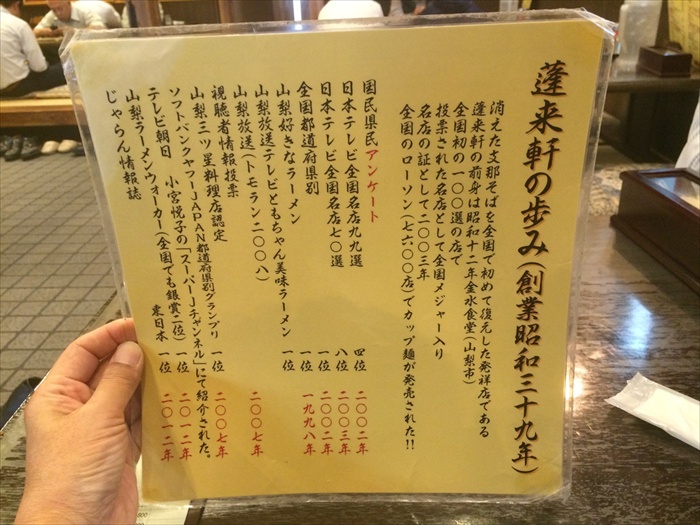 蓬来軒の歩み(創業昭和三十九年)
消えた支那そばを全国で初めて復元した発祥店である
蓬来軒の前身は昭和十二年金水食堂(山梨市)
全国初の一〇〇選の店で
投票された名店として全国メジャー入り
名店の証として二〇〇三年
全国のローソン(七六〇〇店)でカップ麺が発売された!!
国民県民アンケート
日本テレビ全国名店九九選 四位 二〇〇二年
日本テレビ全国名店七〇選 八位 二〇〇三年
全国都道府県別 一位 二〇〇二年
山梨好きなラーメン 一位 一九九八年
山梨放送テレビともちゃん美味ラーメン 一位
山梨放送(トモラン二〇〇八) 二〇〇七年
視聴者情報投票
山梨三ツ星料理店認定 一位 二〇〇七年
ソフトバンクヤフーJAPAN都道府県別グランプリ
テレビ朝日 小宮悦子の「スーパーJチャンネル」にて紹介された。
山梨ラーメンウォーカー(全国でも銀賞二位) 一位 二〇一二年
じゃらん情報誌 東日本 一位 二〇一二年